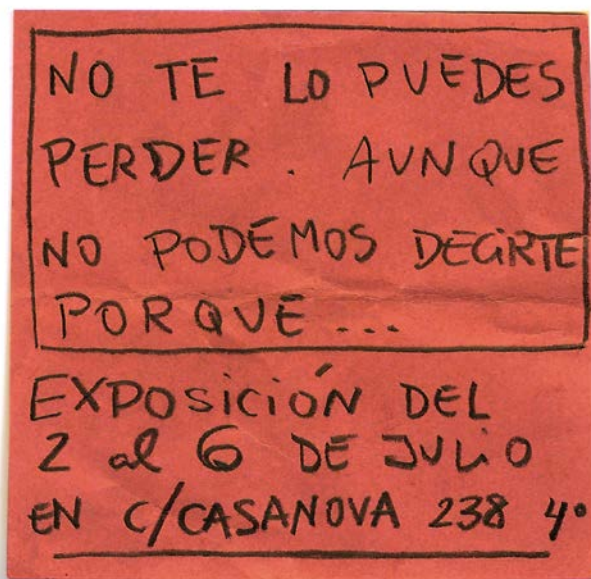 NO TE LO PUEDES
PERDER. AUNQUE
NO PODEMOS DECIRTE
PORQUE...
EXPOSICIÓN DEL
2 al 6 DE JULIO
EN C/CASANOVA 238 4º